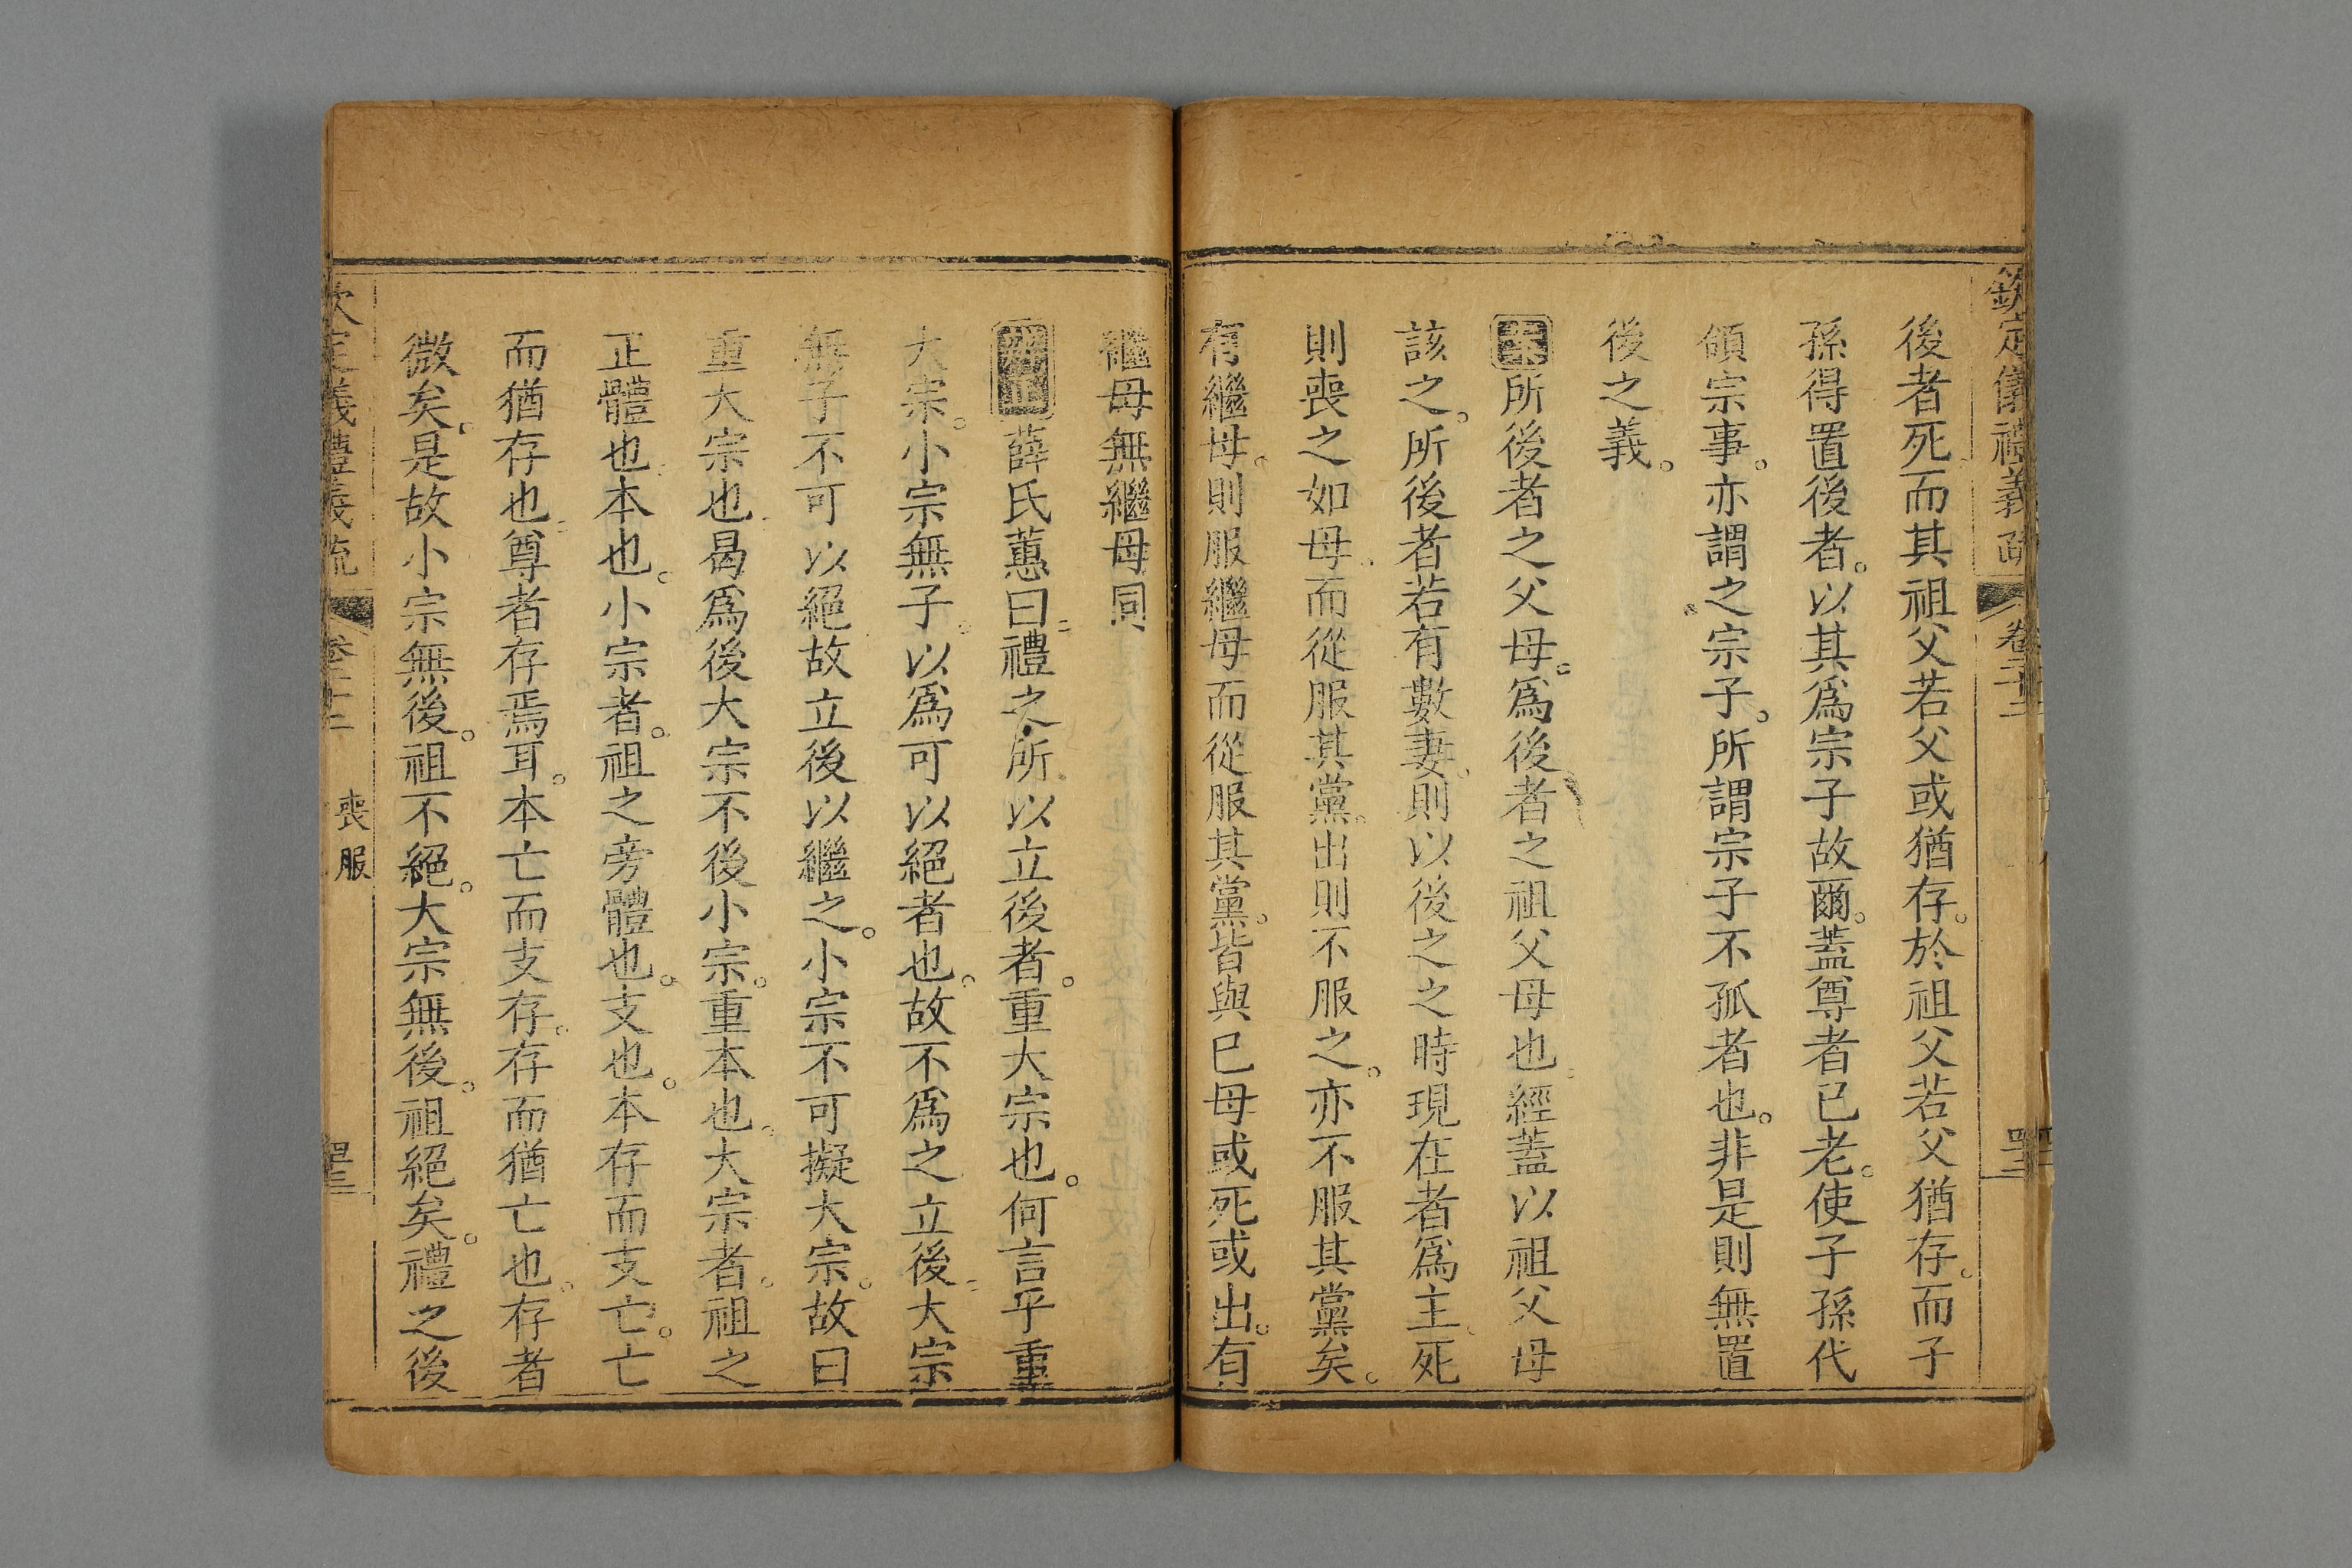 欽定儀禮義疏 卷二十二
後者死而其祖父若父或猶存。於祖父若父猶存。而子
孫得置後者。以其爲宗子故爾。蓋尊者已老。使子孫代
領宗事。亦謂之宗子。所謂宗子不孤者也。非是則無置
後之義。
案所後者之父母。爲後者之祖父母也。經蓋以祖父母
該之。所後者若有數妻。則以後之之時現在者爲主。死
則喪之如母。而從服其黨。出則不服之。亦不服其黨矣。
有繼母。則服繼母而從服其黨。皆與已母或死或出。有
繼母無繼母同
薛氏蕙曰。禮之所以立後者。重大宗也。何言乎重
大宗。小宗無子。以爲可以絕者也。故不爲之立後。大宗
無子不可以絕。故立後以繼之。小宗不可擬大宗。故曰
重大宗也。曷爲後大宗不後小宗。重本也。大宗者。祖之
正體也。本也。小宗者。祖之旁體也。支也。本存而支亡。亡
而猶存也。尊者存焉耳。本亡而支存。存而猶亡也。存者
微矣。是故小宗無後。祖不絕。大宗無後。祖絕矣。禮之後
喪服